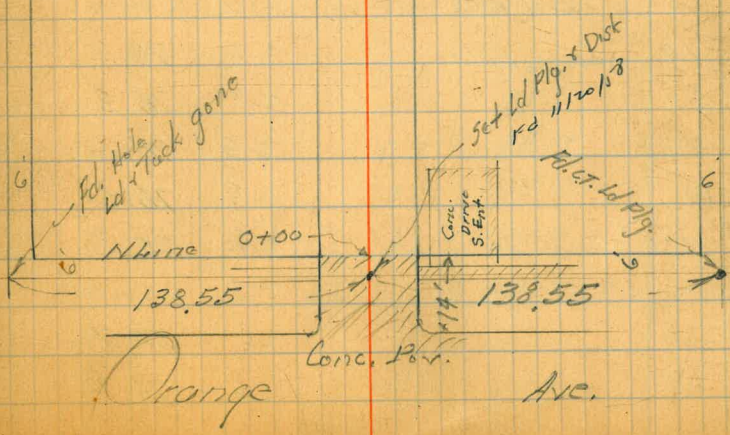 Fd. Hole
Ld & Tack gone
Set Ld Plg. & Disk
Fd 11/20/58
Fd. CT. Ld Plg.
6'
6'
N Line
0+00
Conc.
Drive
S. Ent.
+14'
6'
6'
138.55
138.55
Conc. Pav.
Orange Ave.